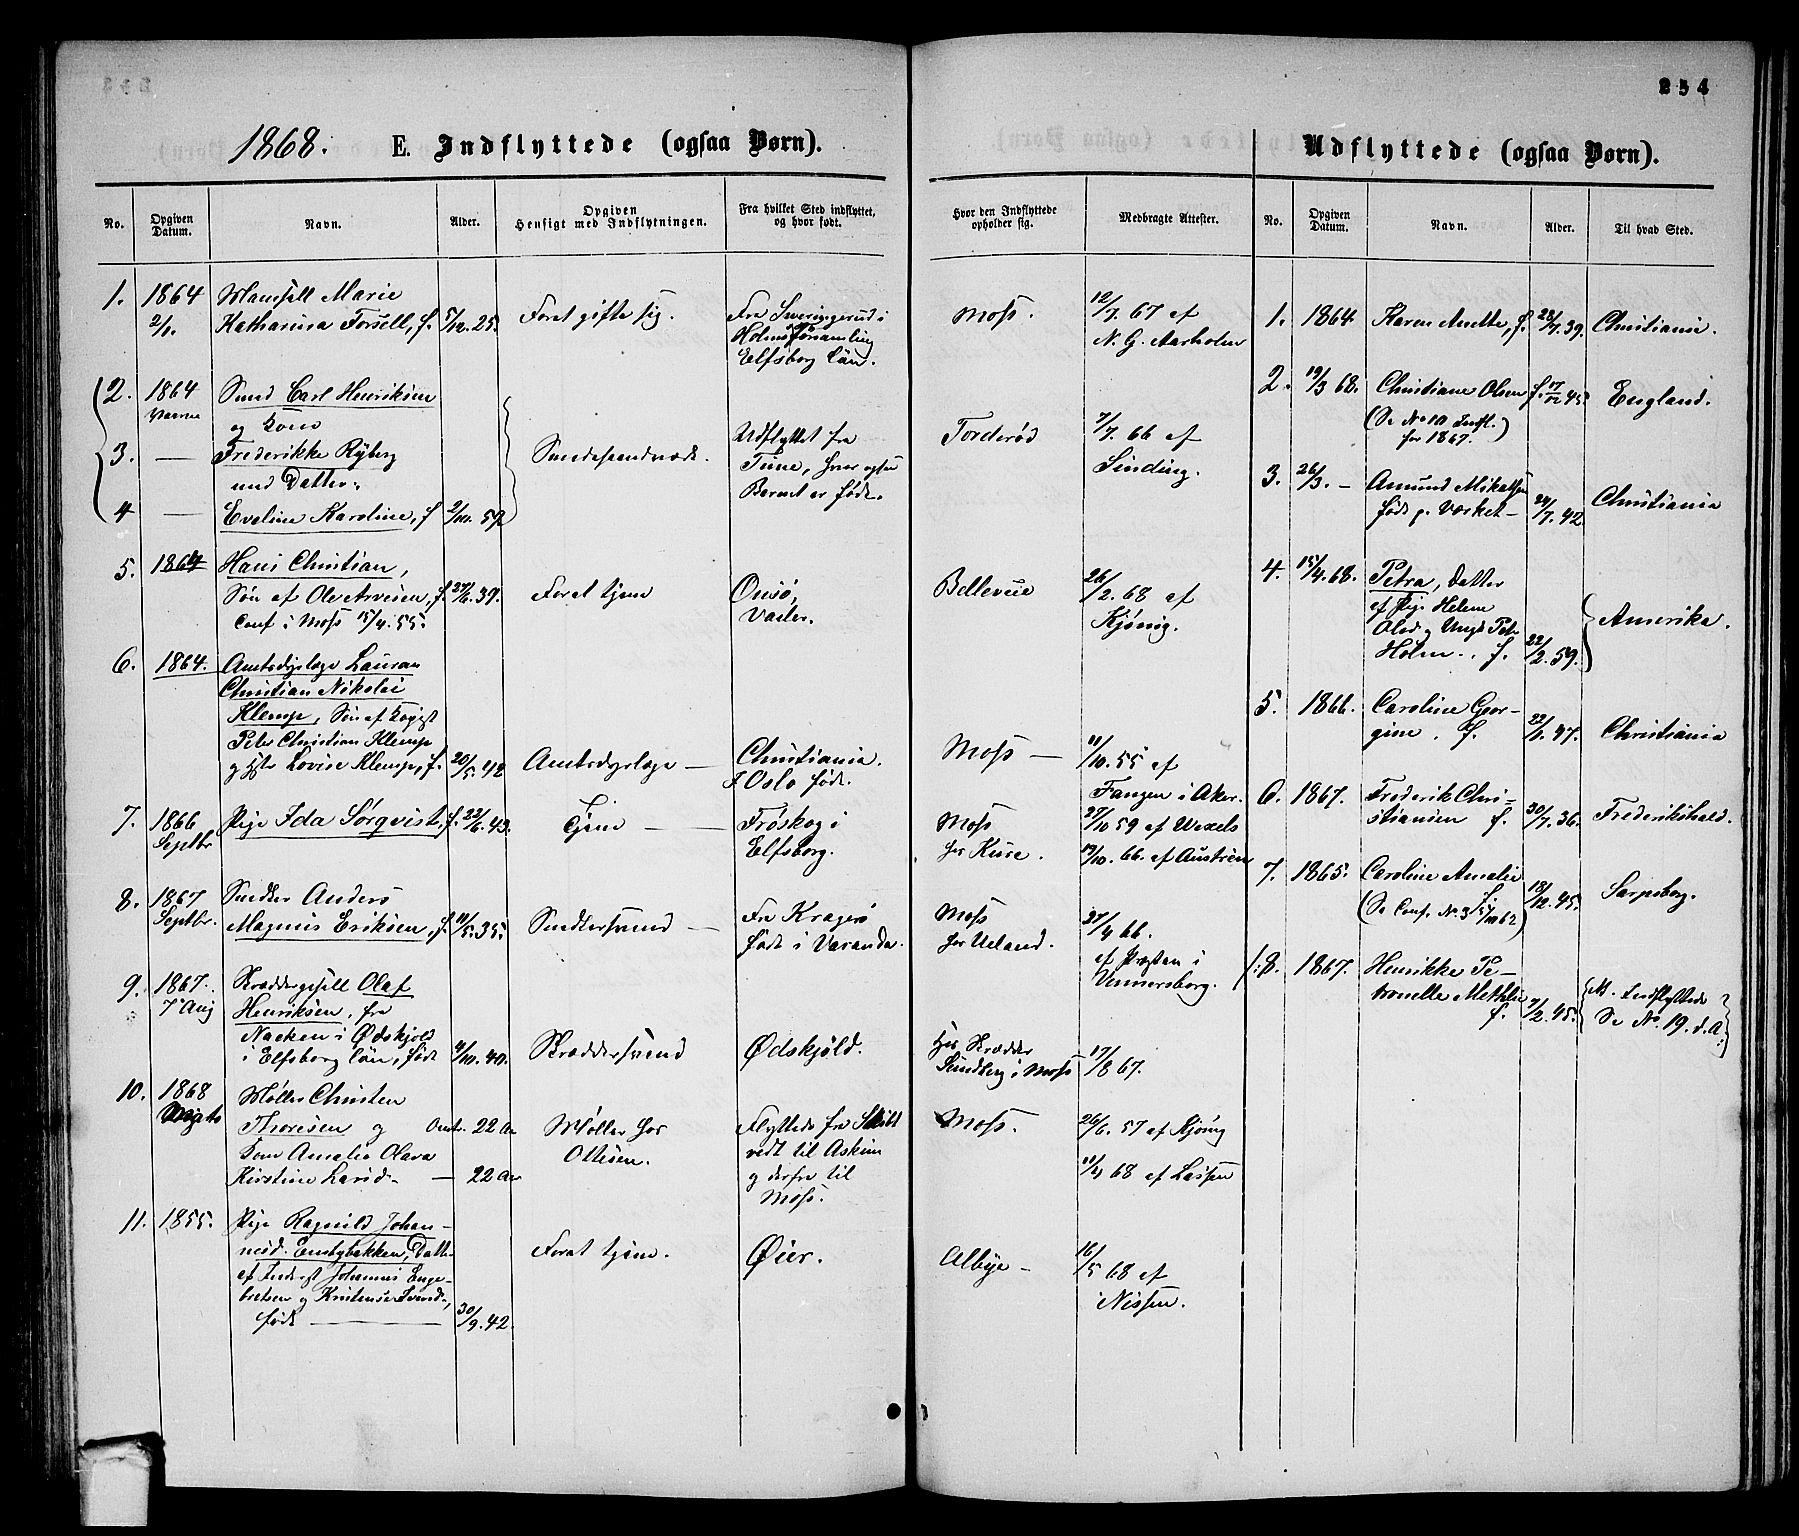 254
1868. E. Indflyttede (ogsaa Børn).
No.
Opgiven Datum.
Navn.
Alder.
Opgiven Hensigt med Indflytningen.
Fra hvilket Sted indflyttet, og hvor født.
Hvor den Indflyttede opholder sig.
Medbragte Attester.
1. 1864 2/1.
Mamsell Marie
Katharina Forsell, f. 5/12. 25.
For at gifte sig.
Fra Sveringerud i
Holms Forsamling
Elfsborg Län.
Moss.
12/7. 67 af
N. G. Aarholm
2. 1864
Smed Carl Henriksen
og Kone
3. — Frederikke Ryberg
med Datter
4 — Eveline Karoline, f 2/10. 59.
Smedehaandværk.
Udflyttet fra
Tune, hvor ogsaa
Barnet er født.
Torderød
7/7. 66 af
Sinding.
5. 1864
Hans Christian,
Søn af Ole Arvesen, f. 27/6. 39.
Conf i Moss 15/4. 55.
For at tjene
Onsø,
Vaaler.
Bellevue
26/2. 68 af
Kjønig.
6. 1864.
Amtsdyrlæge Lauran
Christian Nikolai
Klemp, Søn af
Peter Christian Klemp
og Lovise Klemp, f. 20/5. 42
Amtsdyrlæge —
Christiania.
I Oslo født.
Moss —
11/10. 55 af
Fangen i Aker.
7. 1866 Septbr
Pige Ida Sørqvist, f. 22/6. 43.
Tjene —
Frøskog i
Elfsborg.
Moss
hos Kuse.
27/10 59 af Wexels
19/10. 66. af Austrén
8. 1867 Septbr.
Smeder Anders
Magnus Eriksen, f. 11/5. 35.
Smedersvend —
Fra Kragerø
født i Varanda.
Moss
hos Ueland.
27/4 66.
af Præsten i
Vennersborg.
9. 1867. 7' Aug
Skræddergesell Olaf
Henriksen, fra
Nacken i Ødskjold
i Elfsborg Län, født 4/10. 40.
Skræddersvend
Ødskjöld.
Hos Skrædder
Sundberg i Moss
17/8 67.
10. 1868
Møller Christen
Thoresen og Omtr. 22 Aar
Kone Amalie Olava
Kirstine Larsd. — 22 Aar
Møller hos
Ottesen.
Flyttede fra
til Askim
og derfra til
Moss.
Moss.
26/6. 57 af Kjønig
11/4 68 af Lassen
11. 1855.
Pige Ragnild Johan-
nesd. Ensbybakken, Datter
af Inderst Johannes Enge-
bretsen og
født — 30/9. 42.
For at tjene.
Øier.
Albye —
16/5 68 af
Nissen.
Udflyttede (ogsaa Børn).
No.
Opgiven Datum.
Navn.
Alder.
Til hvad Sted.
1. 1864. Karen Anette, f. 28/7. 39. Christiania.
2. 19/3 68. Christiane Olsen f. 17/12 45. England.
(Se No 10 Indfl.
for 1867.)
3. 26/3. — Amund Mikalsen
født p. Værket — 24/7. 42 Christiania
4. 15/4. 68. Petra, Datter
af Pige Helene
Olsd. og Ungk. Petr
Holm., f. 22/2. 59. Amerika.
5. 1866. Caroline Geor-
gine. f. 22/1. 47. Christiania
6. 1867. Frederik Chri-
stiansen f. 30/7. 36. Frederikshald.
7. 1865. Caroline Amalie
f. 18/12. 45. Sarpsborg.
(Se Conf. No. 3 5/10 62)
8. 1867. Henrikke Pe-
tronelle Mathhie
f. 7/2. 45.
Indflyttede
Se No. 19. d. A.